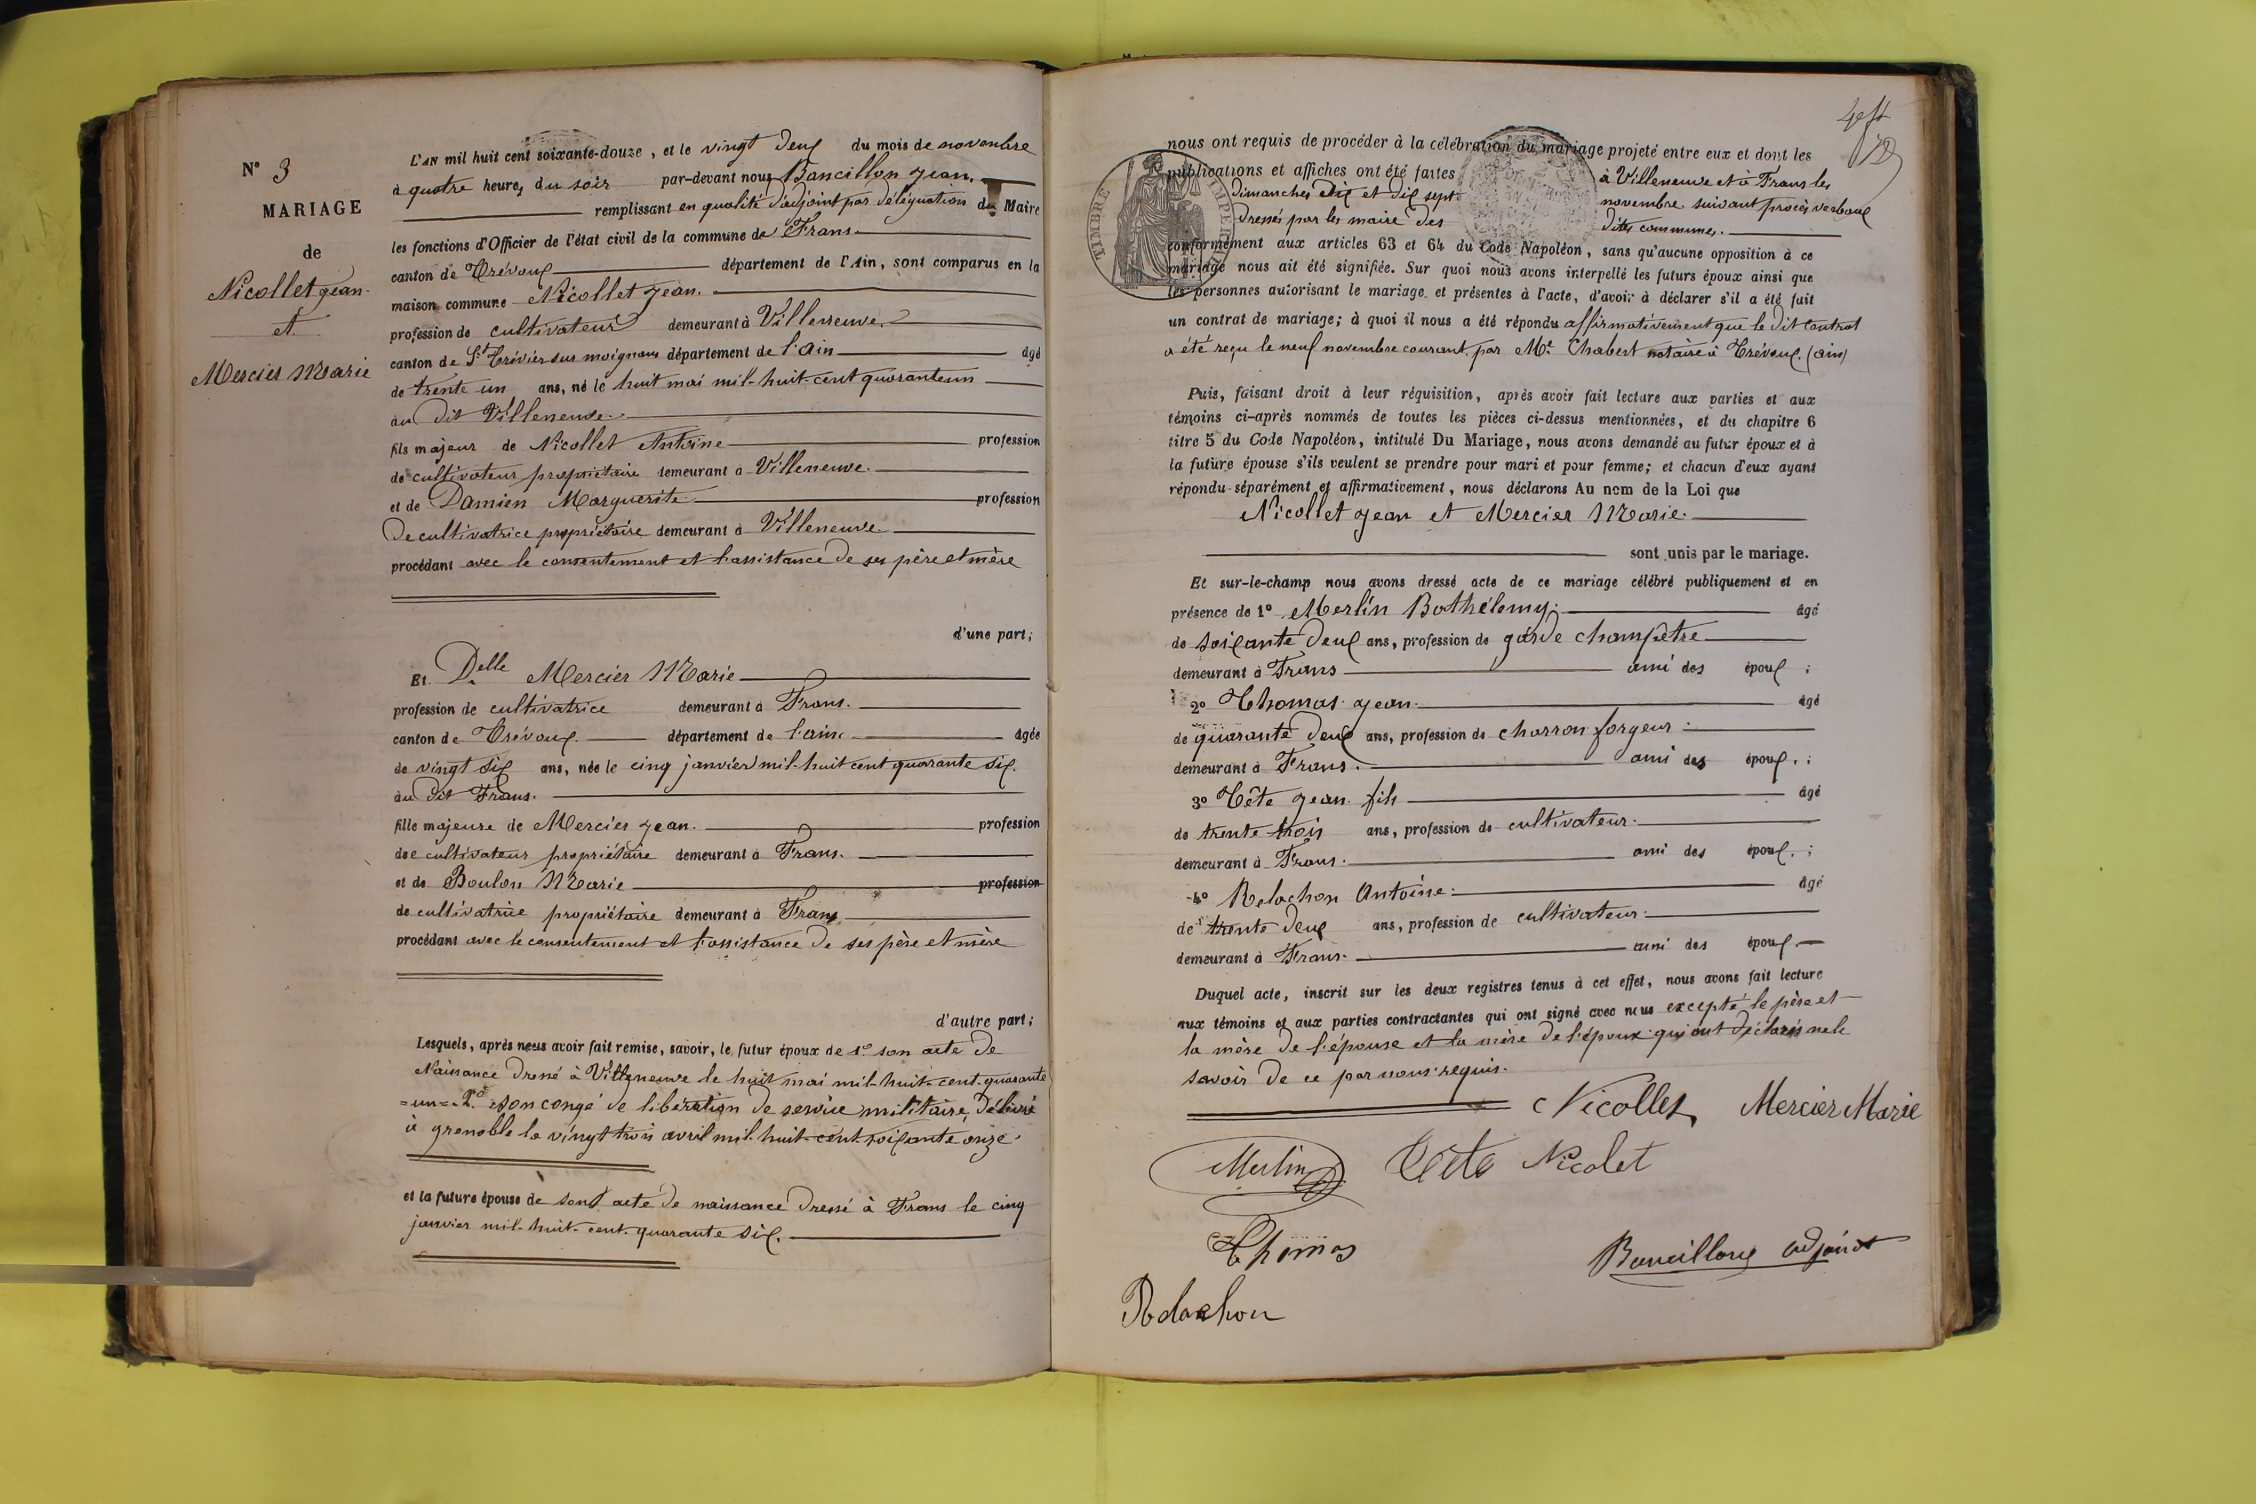 N° 3
MARIAGE
de
Nicollet jean.
et
Mercier Marie
L'AN mil huit cent soixante-douze, et le vingt deux du mois de novembre
à quatre heures du soir par-devant nous Bancillon jean.
remplissant en qualité d'adjoint par délégation du Maire
les fonctions d'Officier de l'état civil de la commune de Frans
canton de Trévoux département de l'Ain, sont comparus en la
maison commune Nicollet jean.
profession de cultivateur demeurant à Villeneuve.
canton de St Trévier sur moignans département de l'ain âgé
de trente un ans, né le huit mai mil-huit-cent quarante un
au dit Villeneuve.
fils majeur de Nicollet Antoine profession
de cultivateur propriétaire demeurant à Villeneuve.
et de Damien Marguerite profession
de cultivatrice propriétaire demeurant à Villeneuve
procédant avec le consentement et l'assistance de ses père et mère
d'une part;
Et Delle Mercier Marie
profession de cultivatrice demeurant à Frans.
canton de Trévoux département de l'ain âgée
de vingt six ans, née le cinq janvier mil-huit cent quarante six.
au dit Frans.
fille majeure de Mercier jean. profession
de cultivateur propriétaire demeurant à Frans.
et de Boulon Marie profession
de cultivatrice propriétaire demeurant à Frans
procédant avec le consentement et l'assistance de ses père et mère
d'autre part;
Lesquels, après nous avoir fait remise, savoir, le futur époux de 1° son acte de
Naissance dressé à Villeneuve le huit mai mil-huit-cent-quarante
=un=. 2° son congé de libération de service militaire, délivré
à grenoble le vingt trois avril mil-huit-cent soixante onze.
et la future épouse de son acte de naissance dressé à Frans le cinq
janvier mil-huit-cent-quarante six.
nous ont requis de procéder à la célébration du mariage projeté entre eux et dont les
publications et affiches ont été faites à Villeneuve et à Frans les
dimanches dix et dix sept novembre suivant procès verbaux
dressés par les maire des dites communes.
TIMBRE
conformément aux articles 63 et 64 du Code Napoléon, sans qu'aucune opposition à ce
mariage nous ait été signifiée. Sur quoi nous avons interpellé les futurs époux ainsi que
les personnes autorisant le mariage et présentes à l'acte, d'avoir à déclarer s'il a été fait
un contrat de mariage; à quoi il nous a été répondu affirmativement que le dit contrat
a été reçu le neuf novembre courant, par Me Chabert notaire à Trévoux. (ain)
Puis, faisant droit à leur réquisition, après avoir fait lecture aux parties et aux
témoins ci-après nommés de toutes les pièces ci-dessus mentionnées, et du chapitre 6
titre 5 du Code Napoléon, intitulé Du Mariage, nous avons demandé au futur époux et à
la future épouse s'ils veulent se prendre pour mari et pour femme; et chacun d'eux ayant
répondu séparément et affirmativement, nous déclarons Au nom de la Loi que
Nicollet jean et Mercier Marie.
sont unis par le mariage.
Et sur-le-champ nous avons dressé acte de ce mariage célébré publiquement et en
présence de 1° Merlin Bathélemy. âgé
de soixante deux ans, profession de garde champêtre
demeurant à Frans ami des époux ;
2° Thomas jean. âgé
de quarante deux ans, profession de charron forgeur
demeurant à Frans. ami des époux. ;
3° Tête jean fils âgé
de trente trois ans, profession de cultivateur.
demeurant à Frans. ami des époux. ;
4° Relachon Antoine. âgé
de trente deux ans, profession de cultivateur.
demeurant à Frans. ami des époux.
Duquel acte, inscrit sur les deux registres tenus à cet effet, nous avons fait lecture
aux témoins et aux parties contractantes qui ont signé avec nous excepté le père et
la mère de l'épouse et la mère de l'époux qui ont déclarés ne le
savoir de ce par nous requis.
Nicollet Mercier Marie
Merlin Tête Nicolet
Thomas
Bancillon adjoint
Relachon